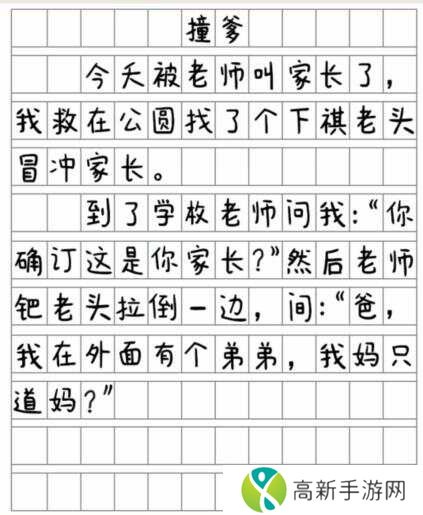 撞爹
今天被老师叫家长了，
我救在公圆找了个下祺老头
冒冲家长。
到了学枚老师问我：“你
确订这是你家长？”然后老师
钯老头拉倒一边，间：“爸，
我在外面有个弟弟，我妈只
道妈？”
高新手游网